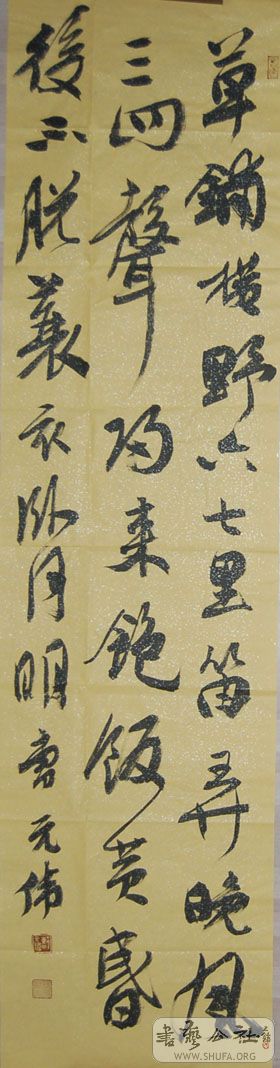 草鋪横野六七里笛弄晚风
三四聲归来飽飯黄昏
後不脱蓑衣臥月明曹元伟
書藝公社
WWW.SHUFA.ORG